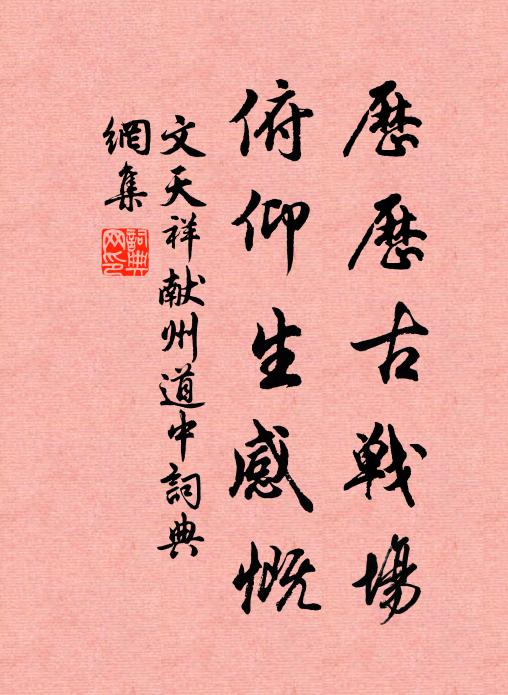 歷歷古戰場
俯仰生感慨
文天祥献州道中詞典
網集
詞典
网印